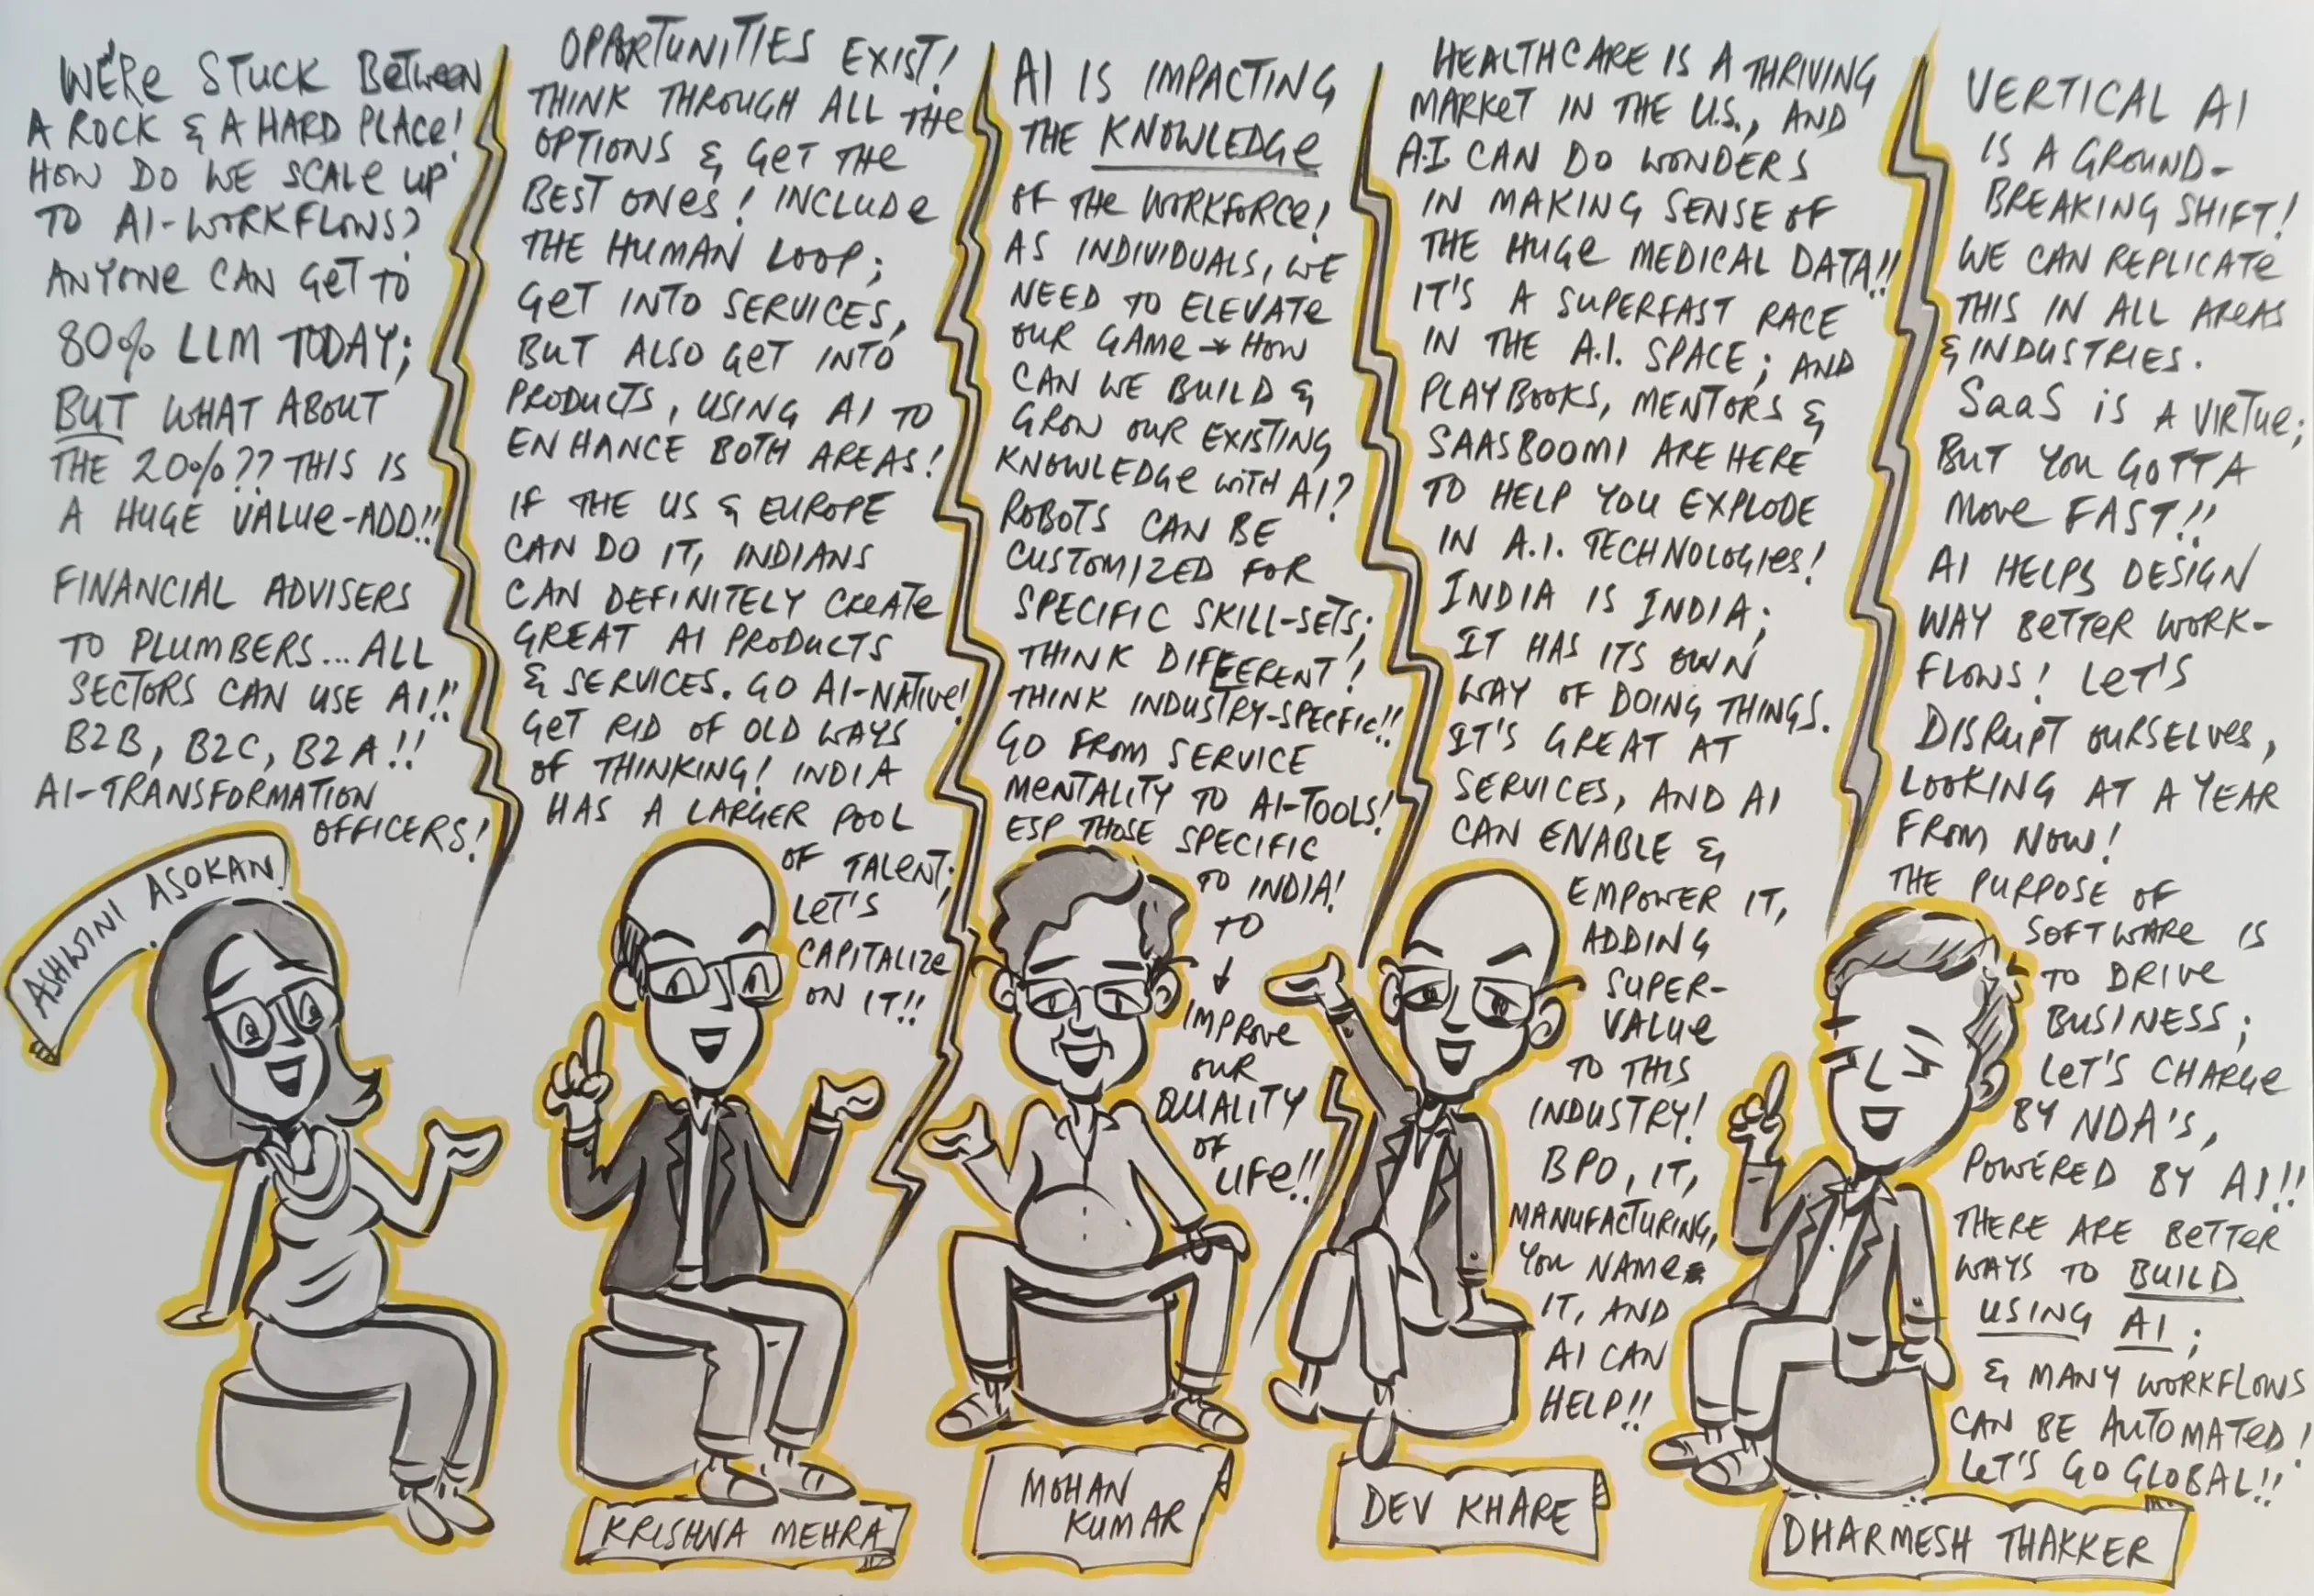 WE'RE STUCK BETWEEN
A ROCK & A HARD PLACE!
HOW DO WE SCALE UP
TO AI-WORKFLOWS?
ANYONE CAN GET TO
80% LLM TODAY;
BUT WHAT ABOUT
THE 20%?? THIS IS
A HUGE VALUE-ADD!!
FINANCIAL ADVISERS
TO PLUMBERS... ALL
SECTORS CAN USE AI!!
B2B, B2C, B2A!!
AI-TRANSFORMATION
OFFICERS!
ASHWINI ASOKAN
OPPARTUNITIES EXIST!
THINK THROUGH ALL THE
OPTIONS & GET THE
BEST ONES! INCLUDE
THE HUMAN LOOP;
GET INTO SERVICES,
BUT ALSO GET INTO
PRODUCTS, USING AI TO
ENHANCE BOTH AREAS!
IF THE US & EUROPE
CAN DO IT, INDIANS
CAN DEFINITELY CREATE
GREAT AI PRODUCTS
& SERVICES. GO AI-NATIVE!
GET RID OF OLD WAYS
OF THINKING! INDIA
HAS A LARGER POOL
OF TALENT;
LET'S
CAPITALIZE
ON IT!!
KRISHNA MEHRA
AI IS IMPACTING
THE KNOWLEDGE
OF THE WORKFORCE!
AS INDIVIDUALS, WE
NEED TO ELEVATE
OUR GAME → HOW
CAN WE BUILD &
GROW OUR EXISTING
KNOWLEDGE WITH AI?
ROBOTS CAN BE
CUSTOMIZED FOR
SPECIFIC SKILL-SETS;
THINK DIFFERENT!
THINK INDUSTRY-SPECIFIC!!
GO FROM SERVICE
MENTALITY TO AI-TOOLS!
ESP THOSE SPECIFIC
TO INDIA!
TO
↓
IMPROVE
OUR
QUALITY
OF
LIFE!!
MOHAN
KUMAR
HEALTHCARE IS A THRIVING
MARKET IN THE U.S., AND
A.I. CAN DO WONDERS
IN MAKING SENSE OF
THE HUGE MEDICAL DATA!!
IT'S A SUPERFAST RACE
IN THE A.I. SPACE; AND
PLAYBOOKS, MENTORS &
SAASBOOMI ARE HERE
TO HELP YOU EXPLODE
IN A.I. TECHNOLOGIES!
INDIA IS INDIA;
IT HAS ITS OWN
WAY OF DOING THINGS.
IT'S GREAT AT
SERVICES, AND AI
CAN ENABLE &
EMPOWER IT,
ADDING
SUPER-
VALUE
TO THIS
INDUSTRY!
BPO, IT,
MANUFACTURING,
YOU NAME
IT, AND
AI CAN
HELP!!
DEV KHARE
VERTICAL AI
IS A GROUND-
BREAKING SHIFT!
WE CAN REPLICATE
THIS IN ALL AREAS
& INDUSTRIES.
SaaS IS A VIRTUE;
BUT YOU GOTTA
MOVE FAST!!
AI HELPS DESIGN
WAY BETTER WORK-
FLOWS! LET'S
DISRUPT OURSELVES,
LOOKING AT A YEAR
FROM NOW!
THE PURPOSE OF
SOFTWARE IS
TO DRIVE
BUSINESS;
LET'S CHARGE
BY NDA'S,
POWERED BY AI!!
THERE ARE BETTER
WAYS TO BUILD
USING AI;
& MANY WORKFLOWS
CAN BE AUTOMATED!
LET'S GO GLOBAL!!
DHARMESH THAKKER